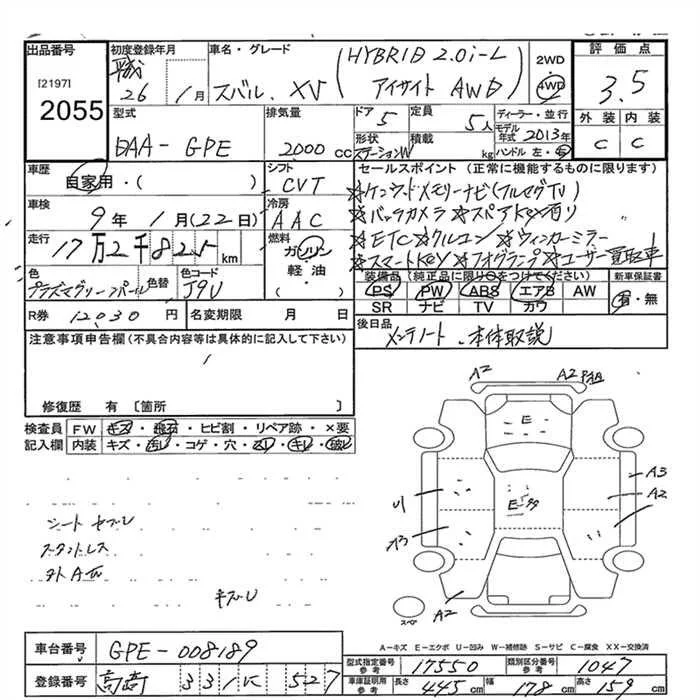 出品番号 初度登録年月 車名・グレード 2WD 評価点
[2197] 平成 スバル. XV (HYBRID 2.0i-L アイサイト AWD) 4WD 3.5
2055 26年 1月
型式 排気量 ドア 定員 ディーラー・並行 外装 内装
DAA-GPE 2000cc 5 5人 モデル年式 2013年 C C
形状 積載 kg ハンドル 左・右
ステーションW
車歴 自家用・( ) シフト CVT セールスポイント (正常に機能するものに限ります)
☆ケンウッドメモリーナビ(フルセグTV)
車検 9年 1月(22日) 冷房 AAC ☆バックカメラ ☆スペアKey有り
走行 17万2千825km 燃料 ガソリン 軽油・( ) ☆ETC ☆クルコン ☆ウィンカーミラー
☆スマートKEY ☆フォグランプ ☆ユーザー買取車
色 色替 色コード 装備品(純正品に限り○をつけてください) 新車保証書
プラズマグリーンパール J9U PS PW ABS エアB AW 有・無
SR ナビ TV カワ
R券 12030円 名変期限 月 日 後日品 メンテノート.本体取説
注意事項申告欄(不具合内容等は具体的に記入して下さい)
修復歴 有 〔箇所 〕
検査員 FW キズ・飛石・ヒビ割・リペア跡・×要
記入欄 内装 キズ・汚レ・コゲ・穴・スレ・キレ・破レ
A2 A2
E
A3
A2
U1
E
A3
A2
スペア
シート
A-キズ E-エクボ U-凹み W-補修跡 S-サビ C-腐食 XX-交換済
車台番号 GPE-008189
型式指定番号 参考 17550 類別区分番号 参考 1047
登録番号 331 527
車庫証明用 参考 長さ 445cm 幅 178cm 高さ 159cm